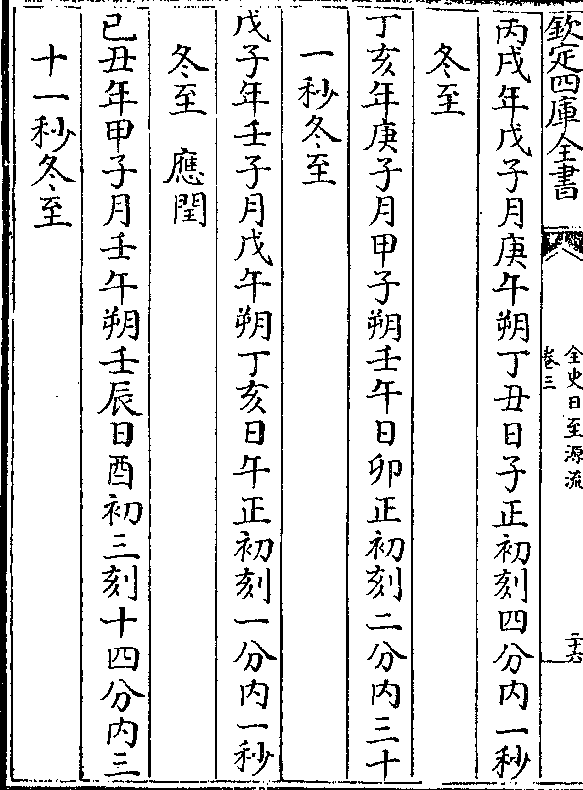 欽定四庫全書
全史日至源流
卷三
二十六
丙戌年戊子月庚午朔丁丑日子正初刻四分内一秒
冬至
丁亥年庚子月甲子朔壬午日卯正初刻二分内三十
一秒冬至
戊子年壬子月戊午朔丁亥日午正初刻一分内一秒
冬至 應閏
已丑年甲子月壬午朔壬辰日酉初三刻十四分内三
十一秒冬至